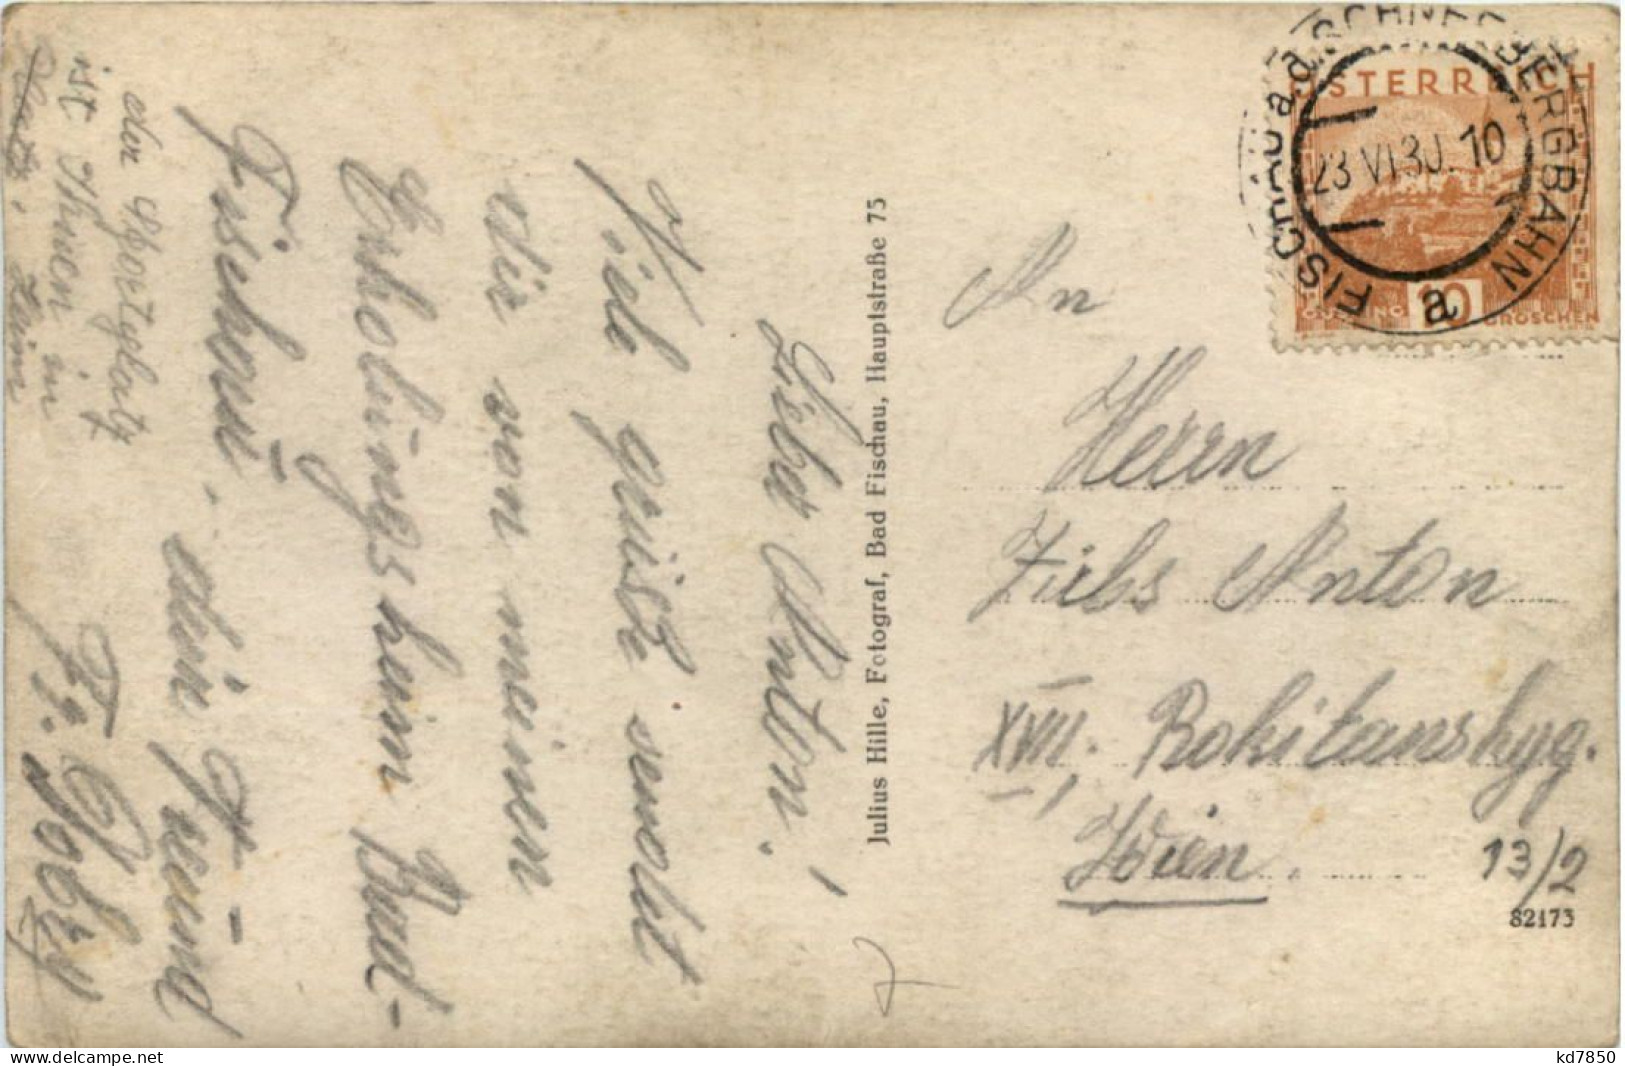 Lieber Anton!
Viele Grüße sendet
dir von meinen
Erholungsheim Bad-
Fischau. dein Freund
den Sportplatz
ist Ihnen in
Julius Hille, Fotograf, Bad Fischau, Hauptstraße 75
FISCHAU a.d. SCHNEEBERGBAHN
23 VI 30. 10
a
ÖSTERREICH
10
GÜSSING
GROSCHEN
An
Herrn
Zibs Anton
XVII, Rokitanskyg.
13/2
Wien.
82173
kd7850
www.delcampe.net